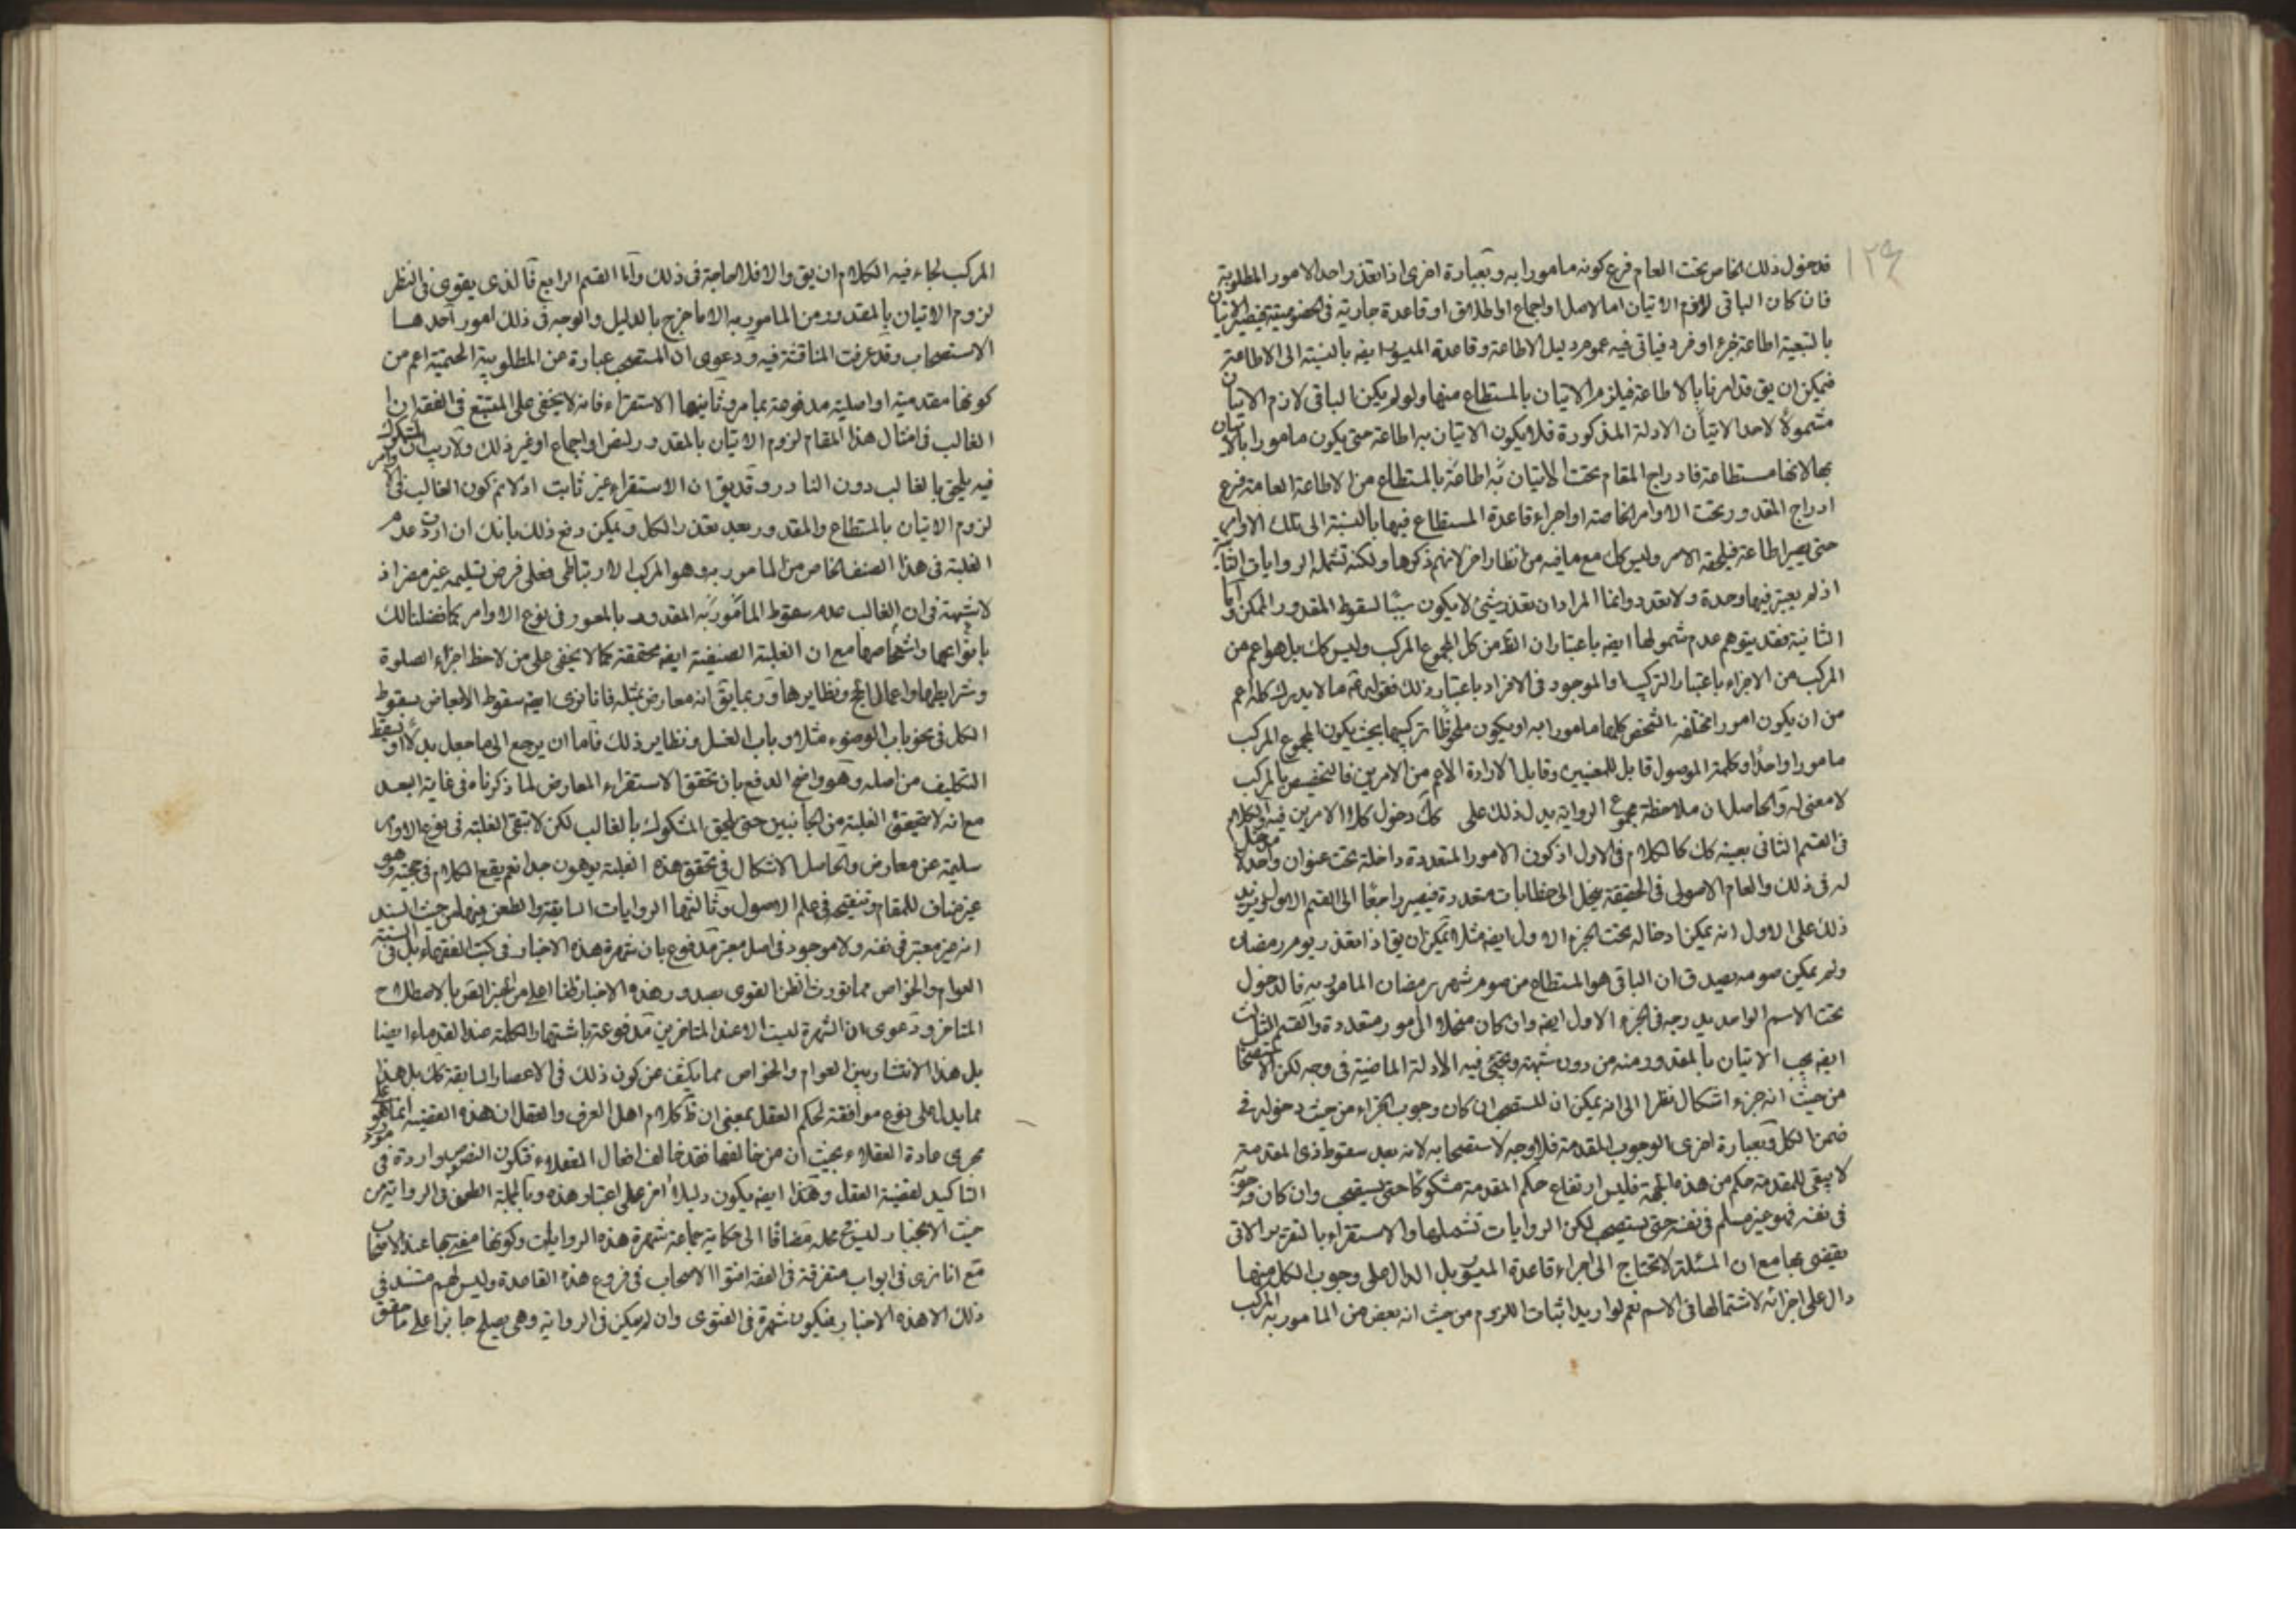 ١٢٩
فدخول ذلك الخاص تحت العام فرع كونه مامورا به وبعبارة اخرى اذا تعذر احد الامور المطلوبة
فان كان الباقى لازم الاتيان اما لاصل او اجماع او اطلاق او قاعدة جارية فى خصوصيته فيصير الاتيان
بالتبعية اطاعة جزء او فرد فياتى فيه عموم دليل الاطاعة وقاعدة الميسور ايضه بالنسبة الى الاطاعة
فيمكن ان يق قد امرنا بالاطاعة فيلزم الاتيان بالمستطاع منها ولو لم يكن الباقى لازم الاتيان
مشمولا لاحد الاتيان الادلة المذكورة فلا يكون الاتيان به اطاعة حتى يكون مامورا بالاتيان
بها لانها مستطاعة فادراج المقام تحت الاتيان به اطاعة بالمستطاع من الاطاعة العامة فرع
ادراج المقدور تحت الاوامر الخاصة او اجراء قاعدة المستطاع فيها بالنسبة الى تلك الاوامر
حتى يصير اطاعة فيلحقه الامر وليس كل مع ما فيه من انظار اخر لا نهم ذكرها ولكنه تشمله الروايات الثلث
اذ لم يعتبر فيها وحدة ولا تعدد وانما المراد ان تعذر شئ لا يكون سببا لسقوط المقدور الممكن واما
الثانية فقد يتوهم عدم شمولها ايضه باعتبار ان الظ من كل المجموع المركب وليس كك بل هو اعم من
المركب من الاجزاء باعتبار التركيب او الموجود فى الافراد باعتبار ذلك فقوله ما لا يدرك كله اعم
من ان يكون امورا مختلفة التشخص كلها مامورا به او يكون ملحوظا تركيبها بحيث يكون المجموع المركب
مامورا واحدا وكلمة الموصول قابل للمعنيين وقابل لارادة الاعم من الامرين فالتخصيص بالمركب
لا معنى له والحاصل ان ملاحظة مجموع الرواية يدل لذلك على كك دخول كلا الامرين فيه والكلام
فى القسم الثانى بعينه كك كالكلام فى الاول اذ كون الامور المتعددة داخلة تحت عنوان واحد لا مدخل
له فى ذلك والعام الاصولى فى الحقيقة ينحل الى خطابات متعددة فيصير راجعا الى القسم الاول ويزيد
ذلك على الاول انه يمكن ادخاله تحت الجزء الاول ايضه مثلا يمكن ان يق اذا تعذر يوم رمضان
ولم يمكن صومه يصدق ان الباقى هو المستطاع من صوم شهر رمضان المامور به فالدخول
تحت الاسم الواحد يدرجه فى الجزء الاول ايضه وان كان منحلا الى امور متعددة والقسم الثالث
ايضه يجب الاتيان بالمقدور منه من دون شبهة ويجئ فيه الادلة الماضية فى وجه لكن الاستصحاب
من حيث انه جزء اشكال نظرا الى انه يمكن ان المستصحب ان كان وجوب الجزء من حيث دخوله فى
ضمن الكل وبعبارة اخرى الوجوب المقدمة فلا وجه لاستصحابه لانه بعد سقوط ذى المقدمة
لا يبقى للمقدمة حكم من هذه الجهة فليس ارتفاع حكم المقدمة مشكوكا حتى يستصحب وان كان
فى نفسه فهو غير مسلم فى نفسه حتى يستصحب لكن الروايات تشملها والاستقراء بالتقرير الاتى
يقضى بها مع ان المسئلة لا تحتاج الى اجراء قاعدة الميسور بل الدال على وجوب الكل منهما
دال على اجزائه لاشتمالها فى الاسم نعم لو اريد اثبات اللزوم من حيث انه بعض من المامور به المركب
المركب لجاء فيه الكلام ان يق والا فلا حاجة فى ذلك واما القسم الرابع فالذى يقوى فى النظر
لزوم الاتيان بالمقدور من المامور به الا ما خرج بالدليل والوجه فى ذلك امور احدها
الاستصحاب وقد عرفت المناقشة فيه ودعوى ان المستصحب عبارة عن المطلوبية الحتمية اعم من
كونها مقدمية او اصلية مدفوعة بما مر وثانيها الاستقراء فانه لا يخفى على المتتبع فى الفقه ان
الغالب فى امثال هذا المقام لزوم الاتيان بالمقدور لنص او اجماع او غير ذلك ولا ريب ان المشكوك
فيه يلحق بالغالب دون النادر وقد يق ان الاستقراء غير ثابت اذ لا نم كون الغالب فى الاوامر
لزوم الاتيان بالمستطاع والمقدور بعد تعذر الكل ويمكن دفع ذلك بانك ان اردت عدم
الغلبة فى هذا الصنف الخاص من المامور به وهو المركب الارتباطى فعلى فرض تسليمه غير مضر اذ
لا شبهة فى ان الغالب عدم سقوط المامور به المقدور بالمعسور فى نوع الاوامر كما فصلنا لك
بانواعها واشخاصها مع ان الغلبة الصنفية ايضه محققة كما لا يخفى على من لاحظ اجزاء الصلوة
وشرايطها واعمال الحج ونظايرها وربما يق انه معارض بمثله فانا نرى ايضه سقوط الابعاض بسقوط
الكل فى نحو باب الوضوء مثلا وباب الغسل ونظاير ذلك فاما ان يرجع الى ما جعل بدلا او يسقط
التكليف من اصله وهو واضح الدفع بان تحقق الاستقراء المعارض لما ذكرناه فى غاية البعد
مع انه لا يتحقق الغلبة من الجانبين حتى يلحق المشكوك بالغالب لكن لا تبقى الغلبة فى نوع الاوامر
سليمة عن معارض والحاصل الاشكال فى تحقق هذه الغلبة موهون جدا نعم يقع الكلام فى حجيته وهو
غير مناف للمقام وتنقيحه فى علم الاصول وثالثها الروايات السابقة والطعن فيها من حيث السند
انه غير معتبر فى نفسه ولا موجود فى اصل معتبر مدفوع بان شهرة هذه الاخبار فى كتب الفقهاء بل فى السنة
العوام والخواص مما يورث الظن القوى بصدور هذه الاخبار ظنا اعلى من الخبر القوى بالاصطلاح
المتاخر ودعوى ان الشهرة ليست الا عند المتاخرين مدفوعة باشتهار الكلمة عند القدماء ايضا
بل هذا الانتشار بين العوام والخواص مما يكشف عن كون ذلك فى الاعصار السابقة كك بل هذا
مما يدل على نوع موافقة لحكم العقل بمعنى ان ظ كلام اهل العرف والعقل ان هذه القضية انما هو على
مجرى عادة العقلاء بحيث ان من خالفها فقد خالف افعال العقلاء فتكون النصوص واردة فى مورد
التاكيد لقضية العقل وهذا ايضه يكون دليلا اخر على اعتبار هذه وبالجملة الطعن فى الرواية من
حيث الانجبار ليس فى محله مضافا الى حكاية جماعة شهرة هذه الروايات وكونها مفتى بها عند الاصحاب
مع انا نرى فى ابواب متفرقة فى الفقه افتوا الاصحاب فى فروع هذه القاعدة وليس لهم مستند فى
ذلك الا هذه الاخبار فيكون شهرة فى الفتوى وان لم يكن فى الرواية وهى يصلح جابرا على ما حقق